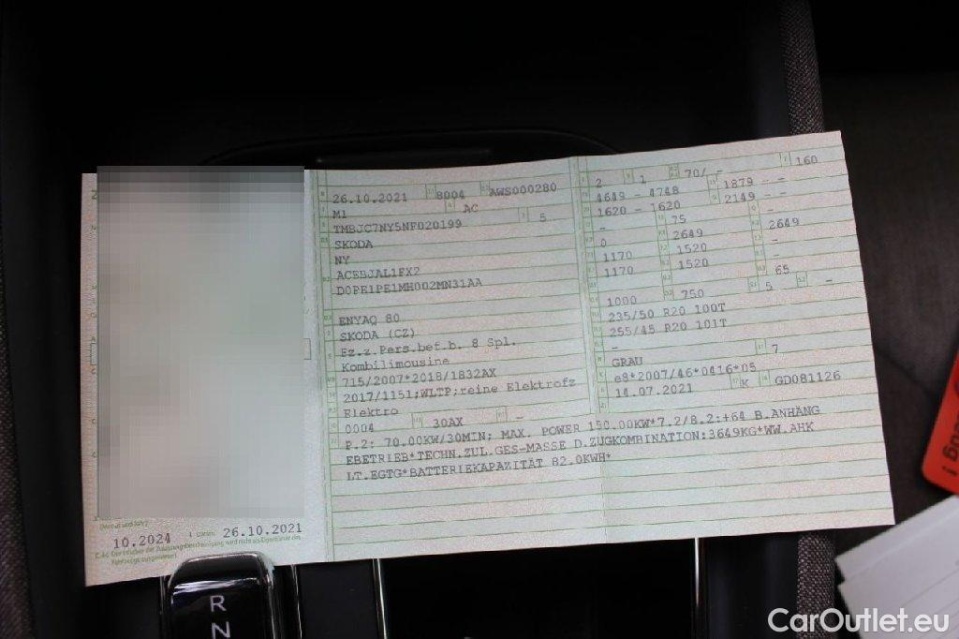 26.10.2021 8004 AWS000280
M1 AC
TMBJC7NY5NF020199 5
SKODA
NY
ACEBJAL1FX2
D0PE1PE1MH002MN31AA
ENYAQ 80
SKODA (CZ)
Fz.z.Pers.bef.b. 8 Spl.
Kombilimousine
715/2007*2018/1832AX
2017/1151;WLTP;reine Elektrofz
Elektro
0004 30AX -
2 1 70/ - 160
4649 - 4748 1879 - -
1620 - 1620 2149 -
- 75 -
0 2649 2649
1170 1520 -
1170 1520 -
65
1000 750 5 -
235/50 R20 100T
255/45 R20 101T
-
GRAU 7
e8*2007/46*0416*05
14.07.2021 K GD081126
P.2: 70.00KW/30MIN; MAX. POWER 150.00KW*7.2/8.2:+64 B.ANHÄNG
EBETRIEB*TECHN.ZUL.GES-MASSE D.ZUGKOMBINATION:3649KG*WW.AHK
LT.EGTG*BATTERIEKAPAZITÄT 82.0KWH*
10.2024 26.10.2021
R
N
CarOutlet.eu